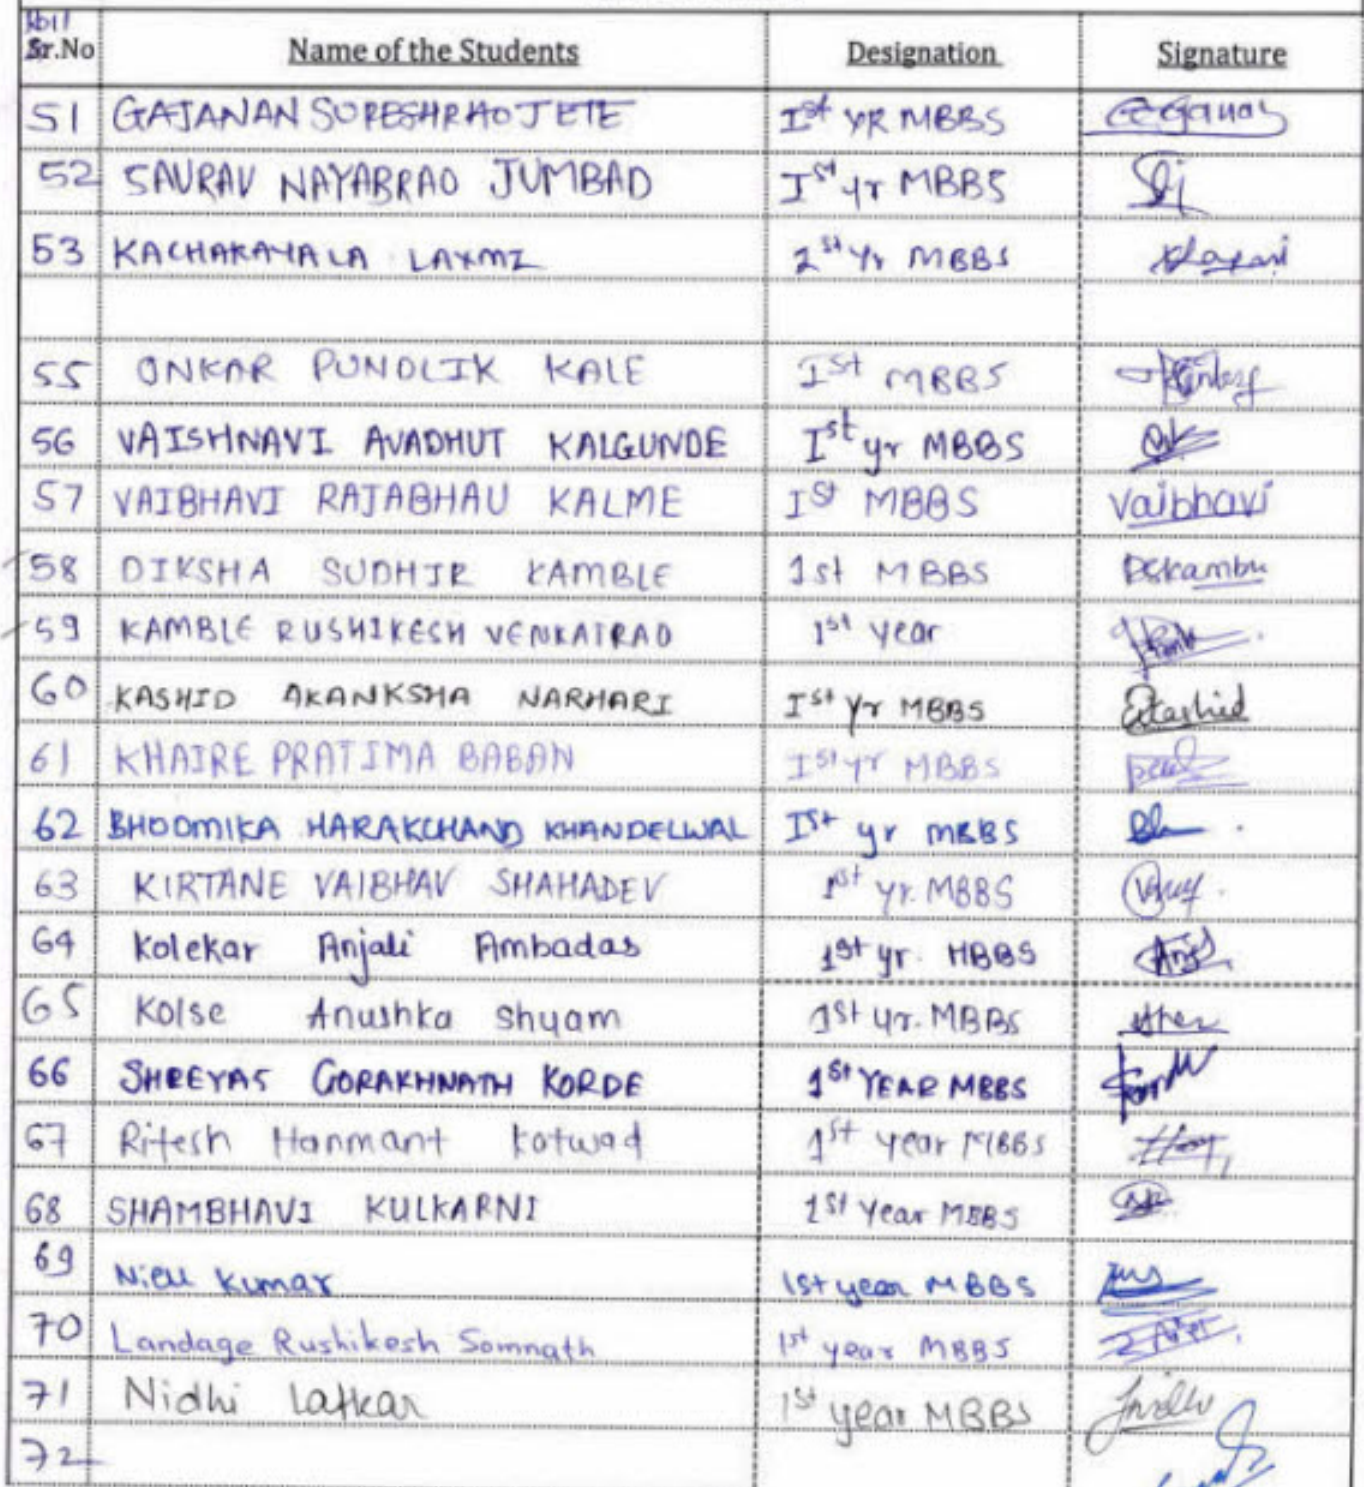 Roll
Sr.No Name of the Students Designation Signature
51 GAJANAN SURESHRAO JETE Ist YR MBBS
52 SAURAV NAYABRAO JUMBAD Ist yr MBBS
53 KACHAKAYALA LAXMI 1st Yr MBBS
55 ONKAR PUNDLIK KALE Ist MBBS
56 VAISHNAVI AVADHUT KALGUNDE Ist yr MBBS
57 VAIBHAVI RAJABHAU KALME Ist MBBS Vaibhavi
58 DIKSHA SUDHIR KAMBLE 1st MBBS
59 KAMBLE RUSHIKESH VENKATRAO 1st year
60 KASHID AKANKSHA NARHARI Ist Yr MBBS
61 KHAIRE PRATIMA BABAN Ist yr MBBS
62 BHOOMIKA HARAKCHAND KHANDELWAL Ist yr MBBS
63 KIRTANE VAIBHAV SHAHADEV 1st yr. MBBS
64 Kolekar Anjali Ambadas 1st yr. MBBS
65 Kolse Anushka Shyam 1st yr. MBBS
66 SHREYAS GORAKHNATH KORDE 1st YEAR MBBS
67 Ritesh Hanmant Kotwad 1st year MBBS
68 SHAMBHAVI KULKARNI 1st Year MBBS
69 Kumar 1st year MBBS
70 Landage Rushikesh Somnath 1st year MBBS
71 Nidhi Latkar 1st year MBBS
72